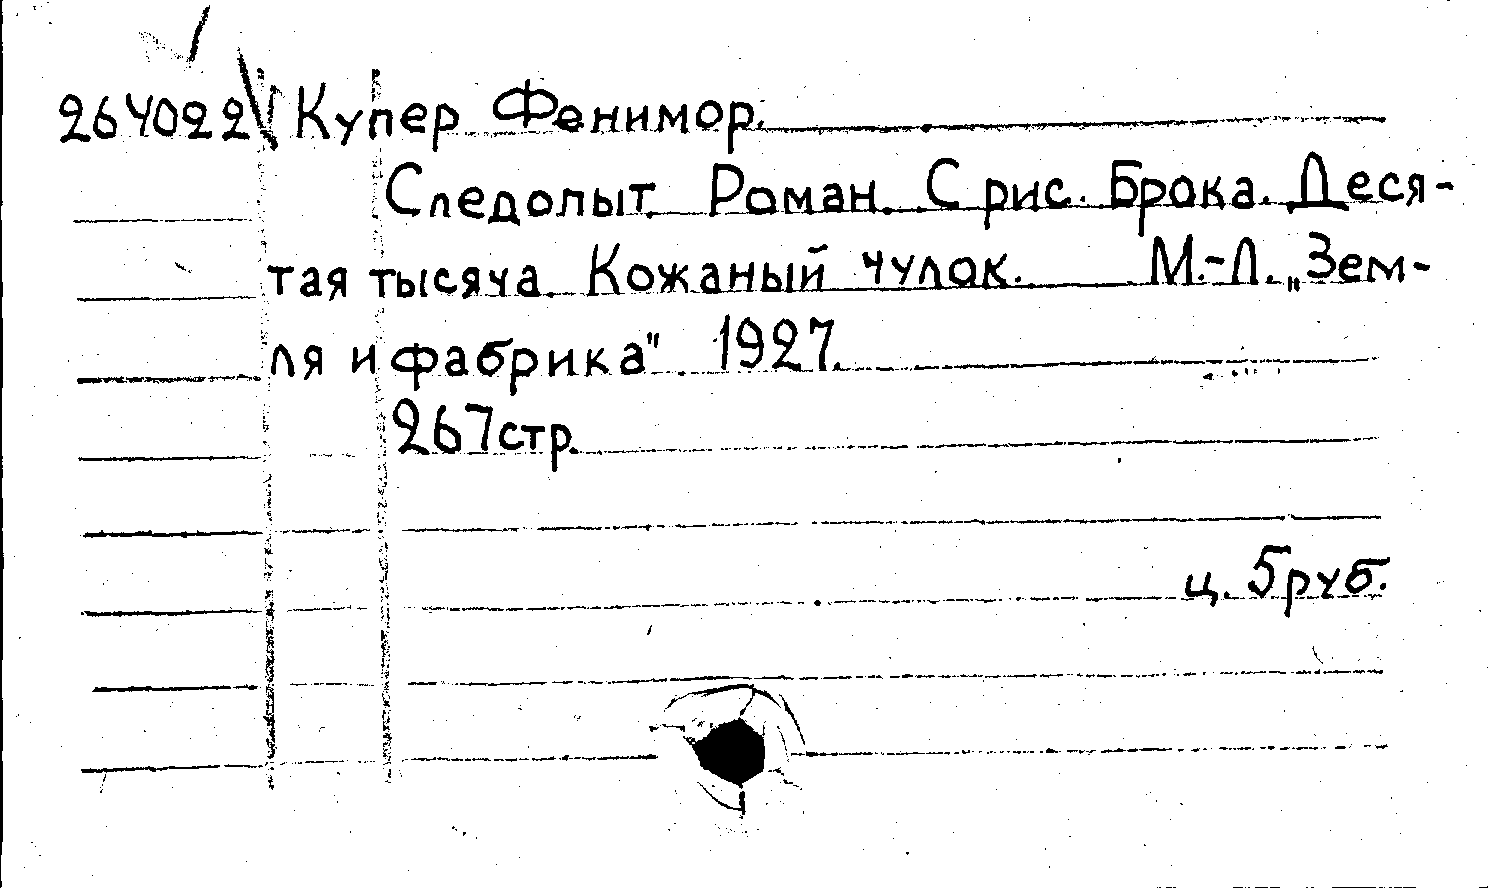 264022 Купер Фенимор.
Следопыт. Роман. С рис. Брока. Деся-
тая тысяча. Кожаный чулок. М.-Л. „Зем-
ля и фабрика" 1927.
267 стр.
ц. 5 руб.